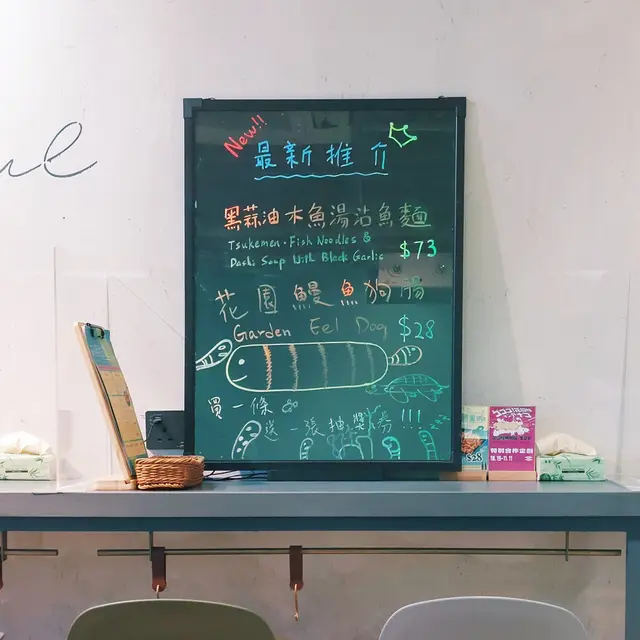 New!!
最新推介
黑蒜油木魚湯沾魚麵
Tsukemen·Fish Noodles &
Dashi Soup With Black Garlic $73
花園鰻魚狗腸
Garden Eel Dog $28
買一條
送一張抽獎券!!!
$28
特別合作企劃